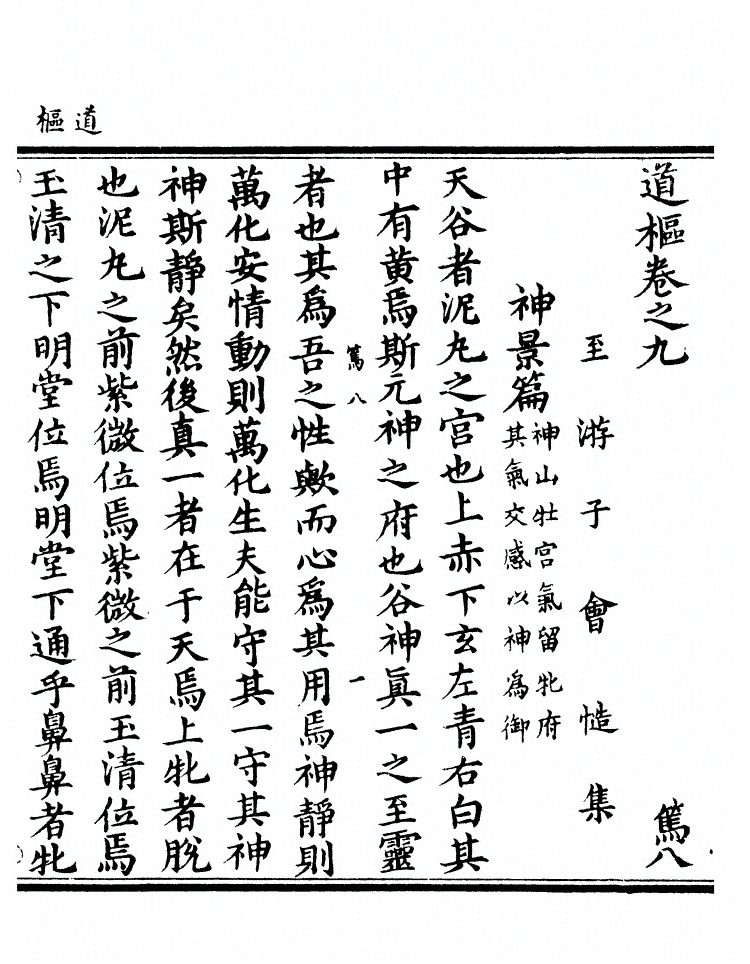 道樞
道樞卷之九 篤八
至游子會慥集
神景篇
神山牡宮氣留牝府
其氣交感以神爲御
天谷者泥丸之宮也上赤下玄左青右白其
中有黄焉斯元神之府也谷神眞一之至靈
篤八 一
者也其爲吾之性歟而心爲其用焉神靜則
萬化安情動則萬化生夫能守其一守其神
神斯靜矣然後真一者在于天焉上牝者脫
也泥丸之前紫微位焉紫微之前玉清位焉
玉清之下明堂位焉明堂下通乎鼻鼻者牝